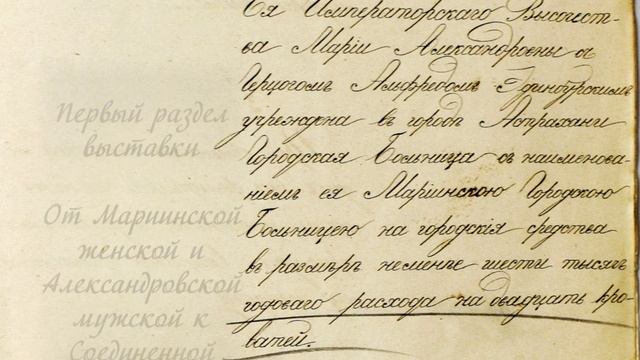 Ея Императорскаго Высочест-
ва Маріи Александровны съ
Герцогомъ Альфредомъ Эдинбургскимъ
учреждена въ городѣ Астрахани
Городская Больница съ наименова-
ніемъ ея Маріинскою Городскою
Больницею на городскія средства
въ размѣрѣ неменѣе шести тысячъ
годоваго расхода на двадцать кро-
ватей.
Первый раздел
выставки
От Мариинской
женской и
Александровской
мужской к
Соединенной